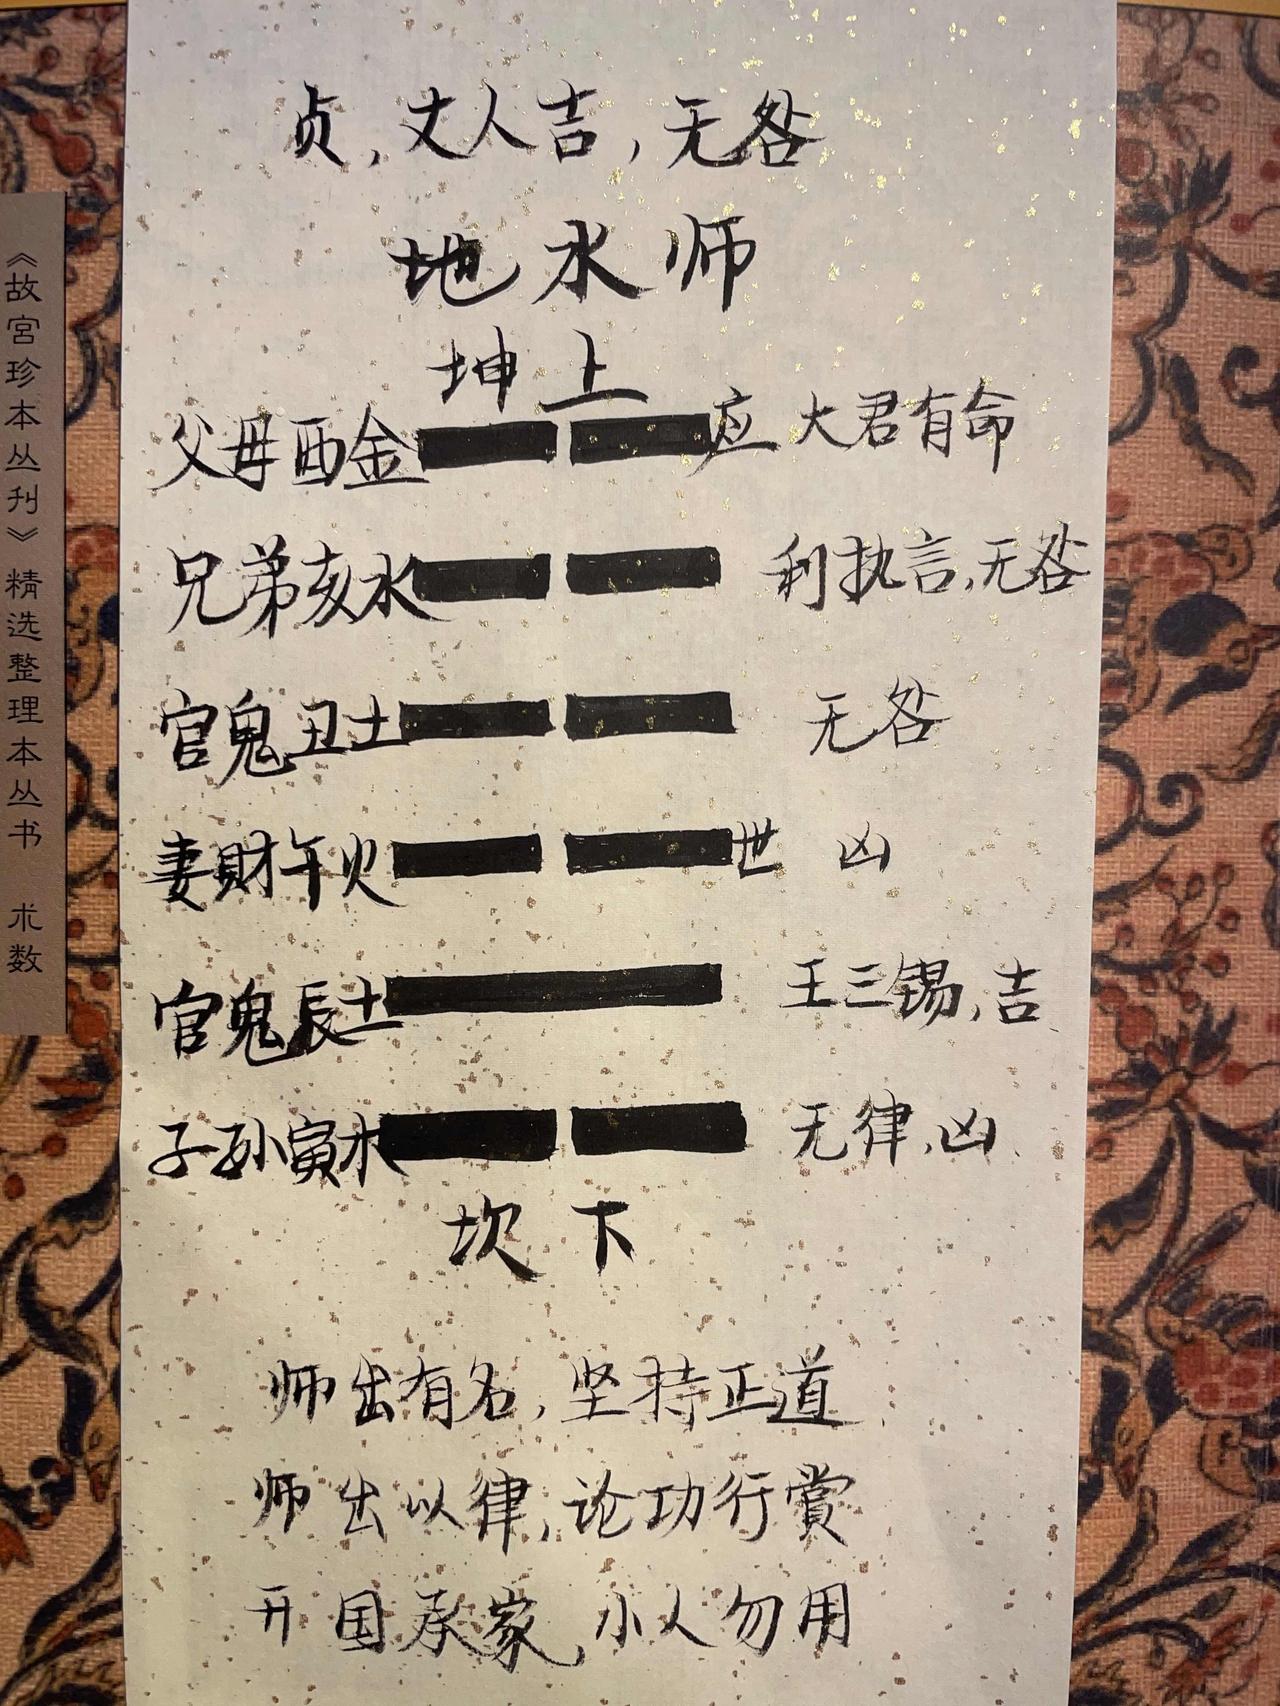 贞,丈人吉,无咎
地水师
坤上
父母酉金 应 大君有命
兄弟亥水 利执言,无咎
官鬼丑土 无咎
妻财午火 世 凶
官鬼辰土 王三锡,吉
子孙寅木 无律,凶
坎下
师出有名,坚持正道
师出以律,论功行赏
开国承家,小人勿用
《故宫珍本丛刊》精选整理本丛书 术数